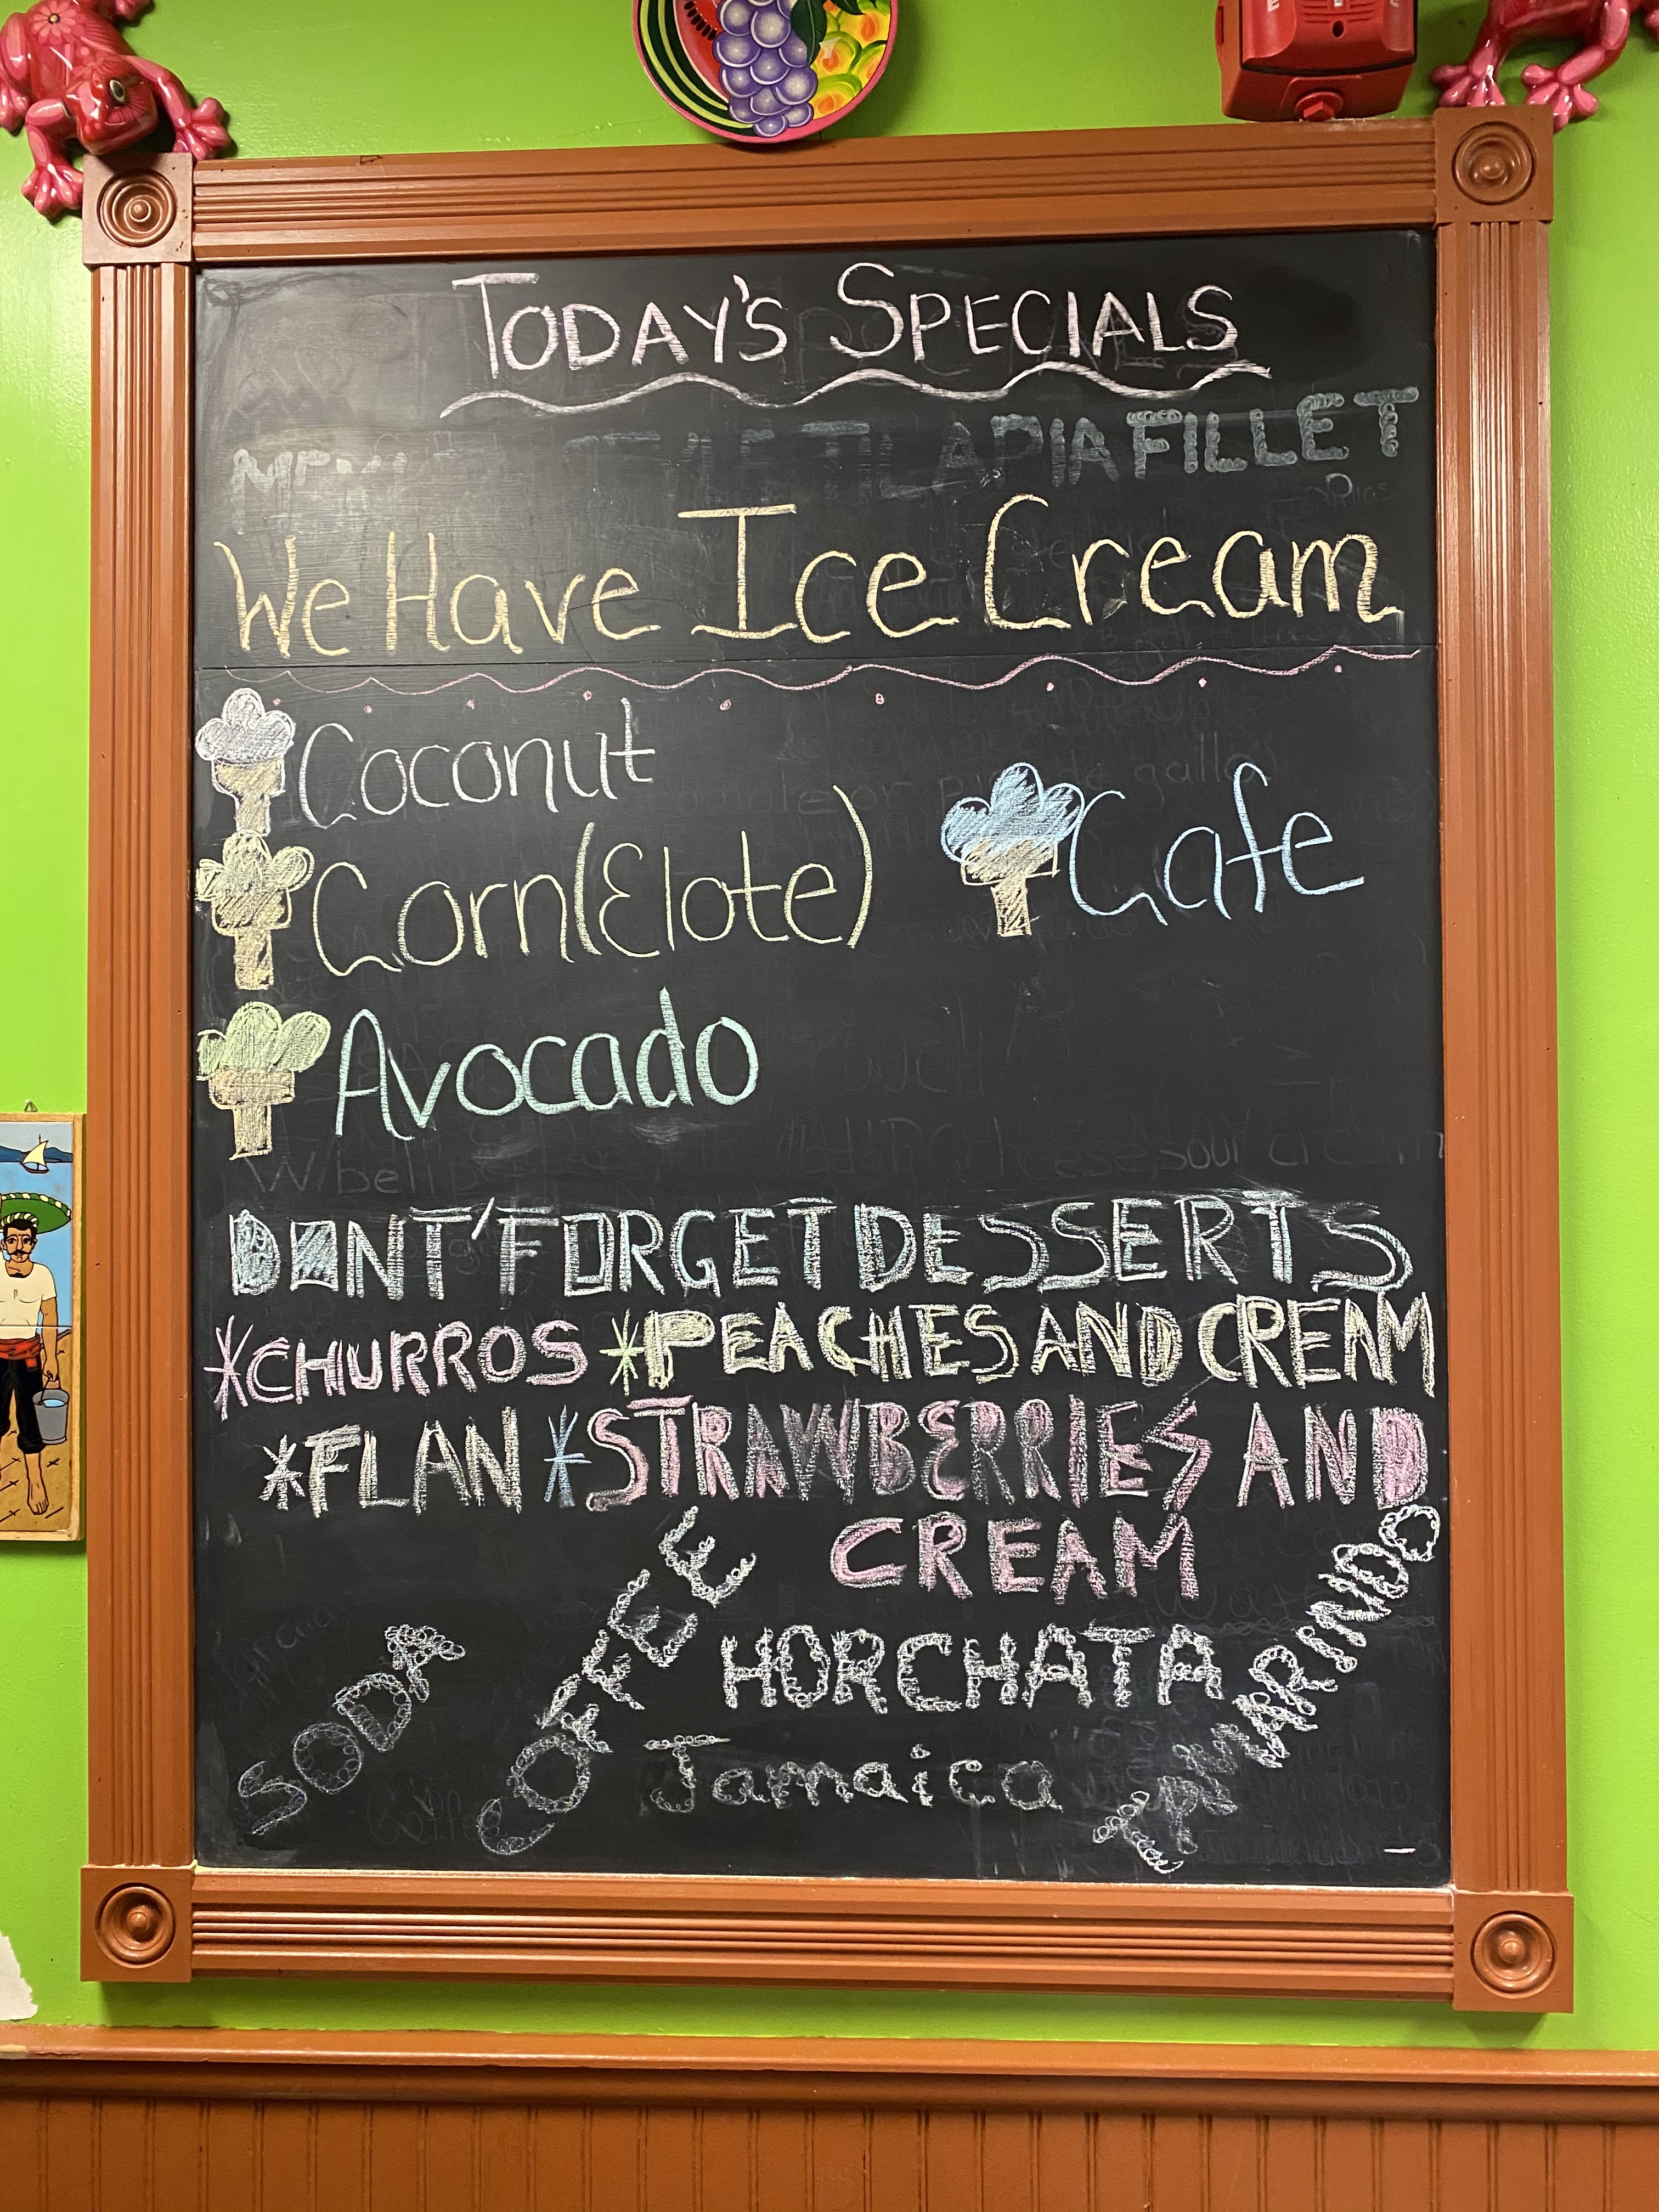 TODAY'S SPECIALS
TILAPIA FILLET
We Have Ice Cream
Coconut
Corn(Elote) Cafe
Avocado
W/bell cheese, sour cream
DONT' FORGET DESSERTS
*CHURROS *PEACHES AND CREAM
*FLAN *STRAWBERRIES AND
CREAM
SODA COFFEE HORCHATA TAMARINDO
Jamaica